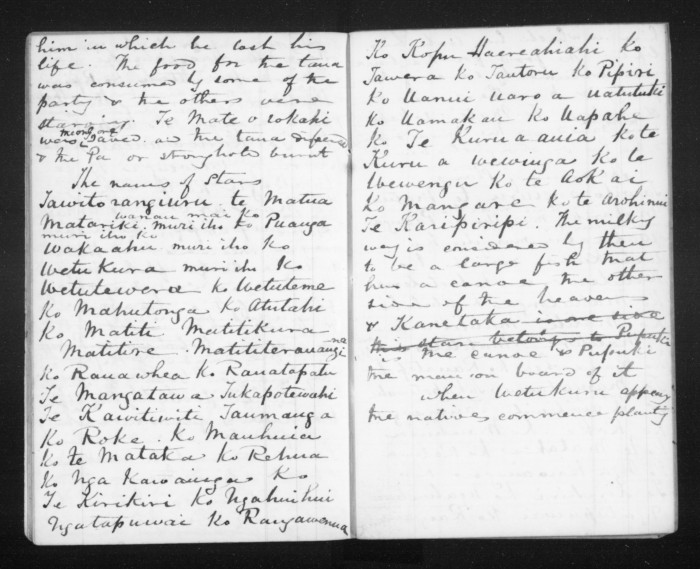 him in which he lost his
life. The food for the taua
was consumed by some of the
party & the others were
starving. Te Mate o tokahi
were saved, as the taua
& the Pa or stronghold burnt
The names of Stars
Tawitorangiuru. te Matua
wanau mai ko
Matariki. muri iho ko Puanga
muri iho ko
Wakaahu muri iho ko
Wetu Kura muri iho Ko
Wetutewera Ko Wetuteme
Ko Mahutonga Ko Atutahi
Ko Matiti Matitikura
Matitire Matititerauangi
na
Ko Ranawhea Ko Ranatapatu
Te Mangatawa Tukapotewahi
Te Kawitiwiti Taumanga
Ko Roke. Ko Mauhuia
Ko te Mataka Ko Rehua
Ko Nga Kawainga Ko
Te Kirikiri Ko Ngahuihui
Ngatapuwai Ko Rangawenua
Ko Kopu Haereahiahi Ko
Tawera Ko Tautoru Ko Pipiri
Ko Uanui uaroa uatutuki
Ko Uamakau Ko Uapahe
Ko Te Kurua auia Ko te
Kurua wewinga Ko te
Wewengu Ko te AoKai
Ko Mangare Ko te Arohinui
Te Karipiripi. The milky
way is considered by them
to be a large fish that
has a canoe the other
side of the heavens
& Kanetaka is one side
this star belongs to Pupuki
is the canoe & Pupuki
the man on board of it
when Wetukura appears
the natives commence planting